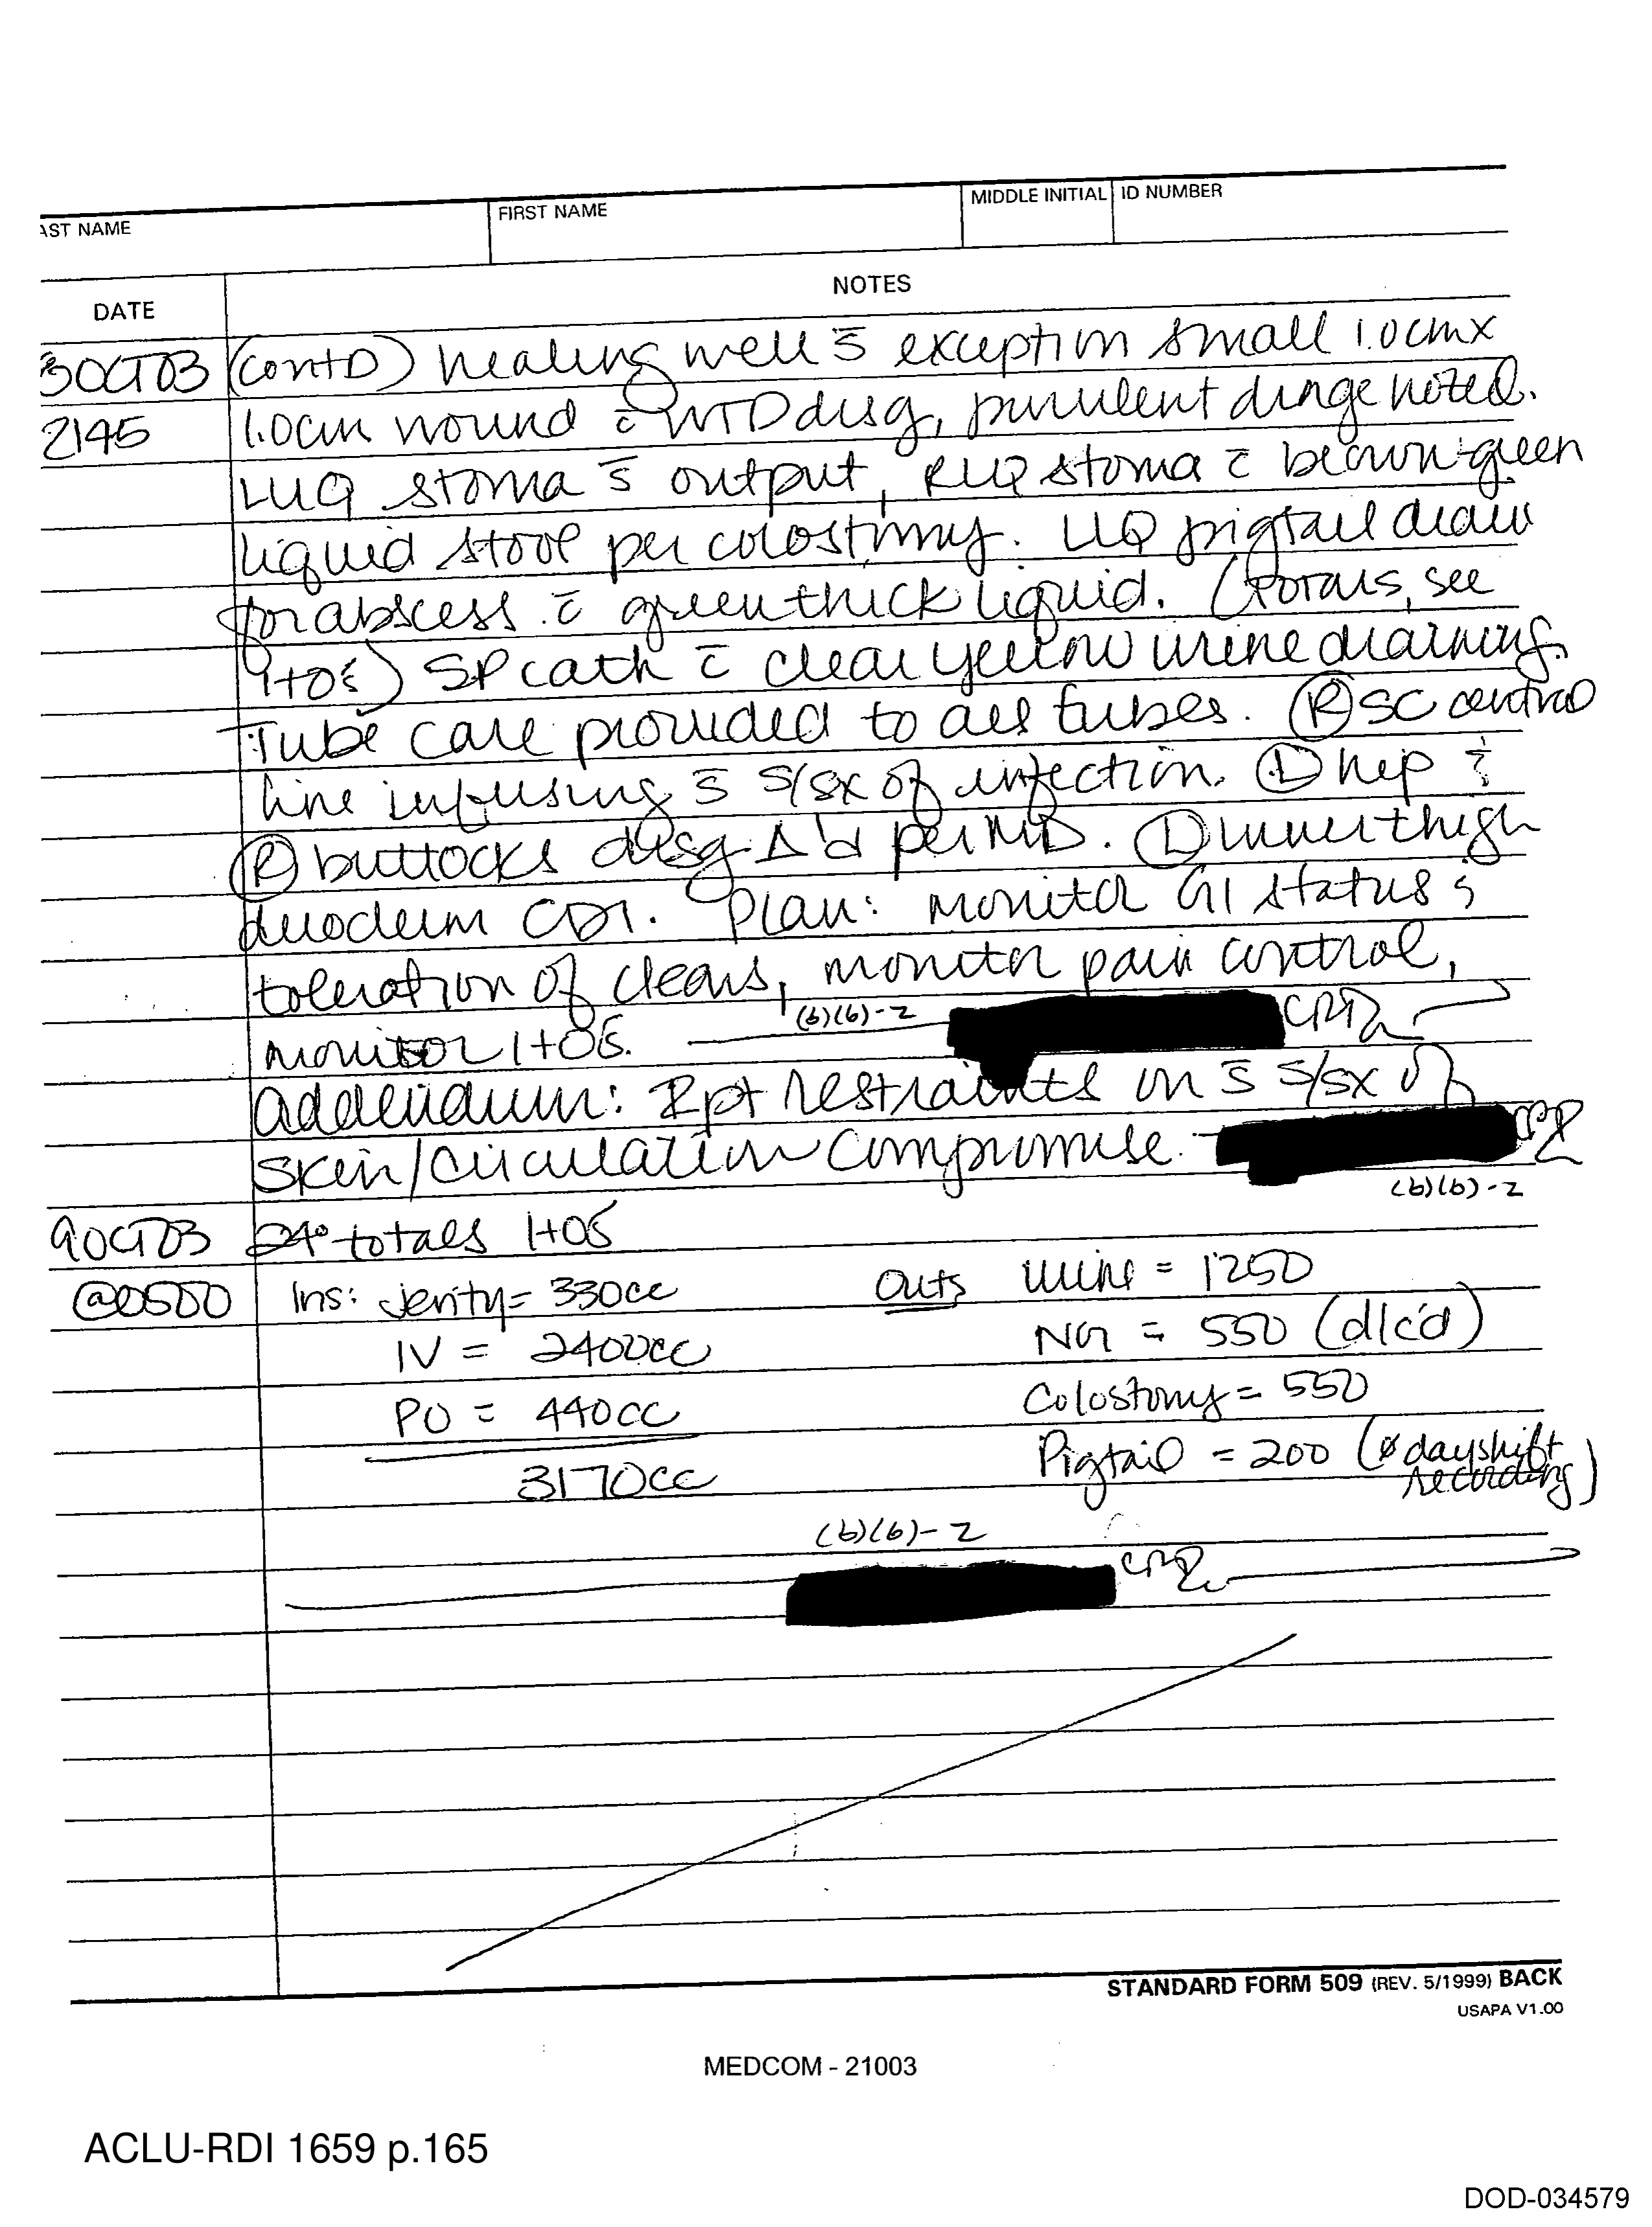 AST NAME
FIRST NAME
MIDDLE INITIAL
ID NUMBER
DATE
NOTES
8OCT03 (contD) healing well s̄ exception small 1.0cmx
2145 1.0cm wound c̄ WTD dsg, purulent drnge noted.
LUQ stoma s̄ output, RUQ stoma c̄ brown-green
liquid stool per colostomy. LLQ pigtail drain
for abscess c̄ green thick liquid. (Totals, see
I+O's) SP cath c̄ clear yellow urine draining.
Tube care provided to all tubes. Ⓡ SC central
line infusing s̄ s/sx of infection. Ⓛ hip &
Ⓡ buttocks dsg Δ'd per MD. Ⓛ inner thigh
duoderm CDI. Plan: monitor GI status &
toleration of clears, monitor pain control,
monitor I+O's.
(b)(6)-2
Addendum: 2pt restraints on s̄ s/sx of
skin/circulation compromise.
(b)(6)-2
9OCT03 24° totals I+O's
@0500 Ins: Jevity = 330cc Outs Urine = 1250
IV = 2400cc NG = 550 (d/c'd)
PO = 440cc Colostomy = 550
3170cc Pigtail = 200 (ø dayshift
recording)
(b)(6)-2
STANDARD FORM 509 (REV. 5/1999) BACK
USAPA V1.00
MEDCOM - 21003
ACLU-RDI 1659 p.165
DOD-034579